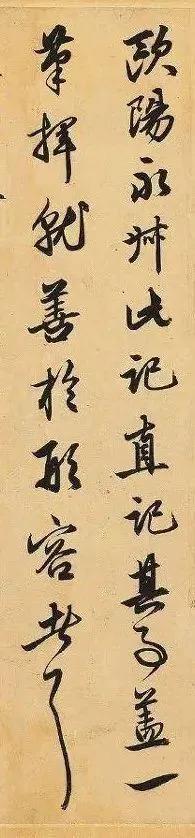 歐陽永叔此記直記其事蓋一
筆揮就善於形容者了